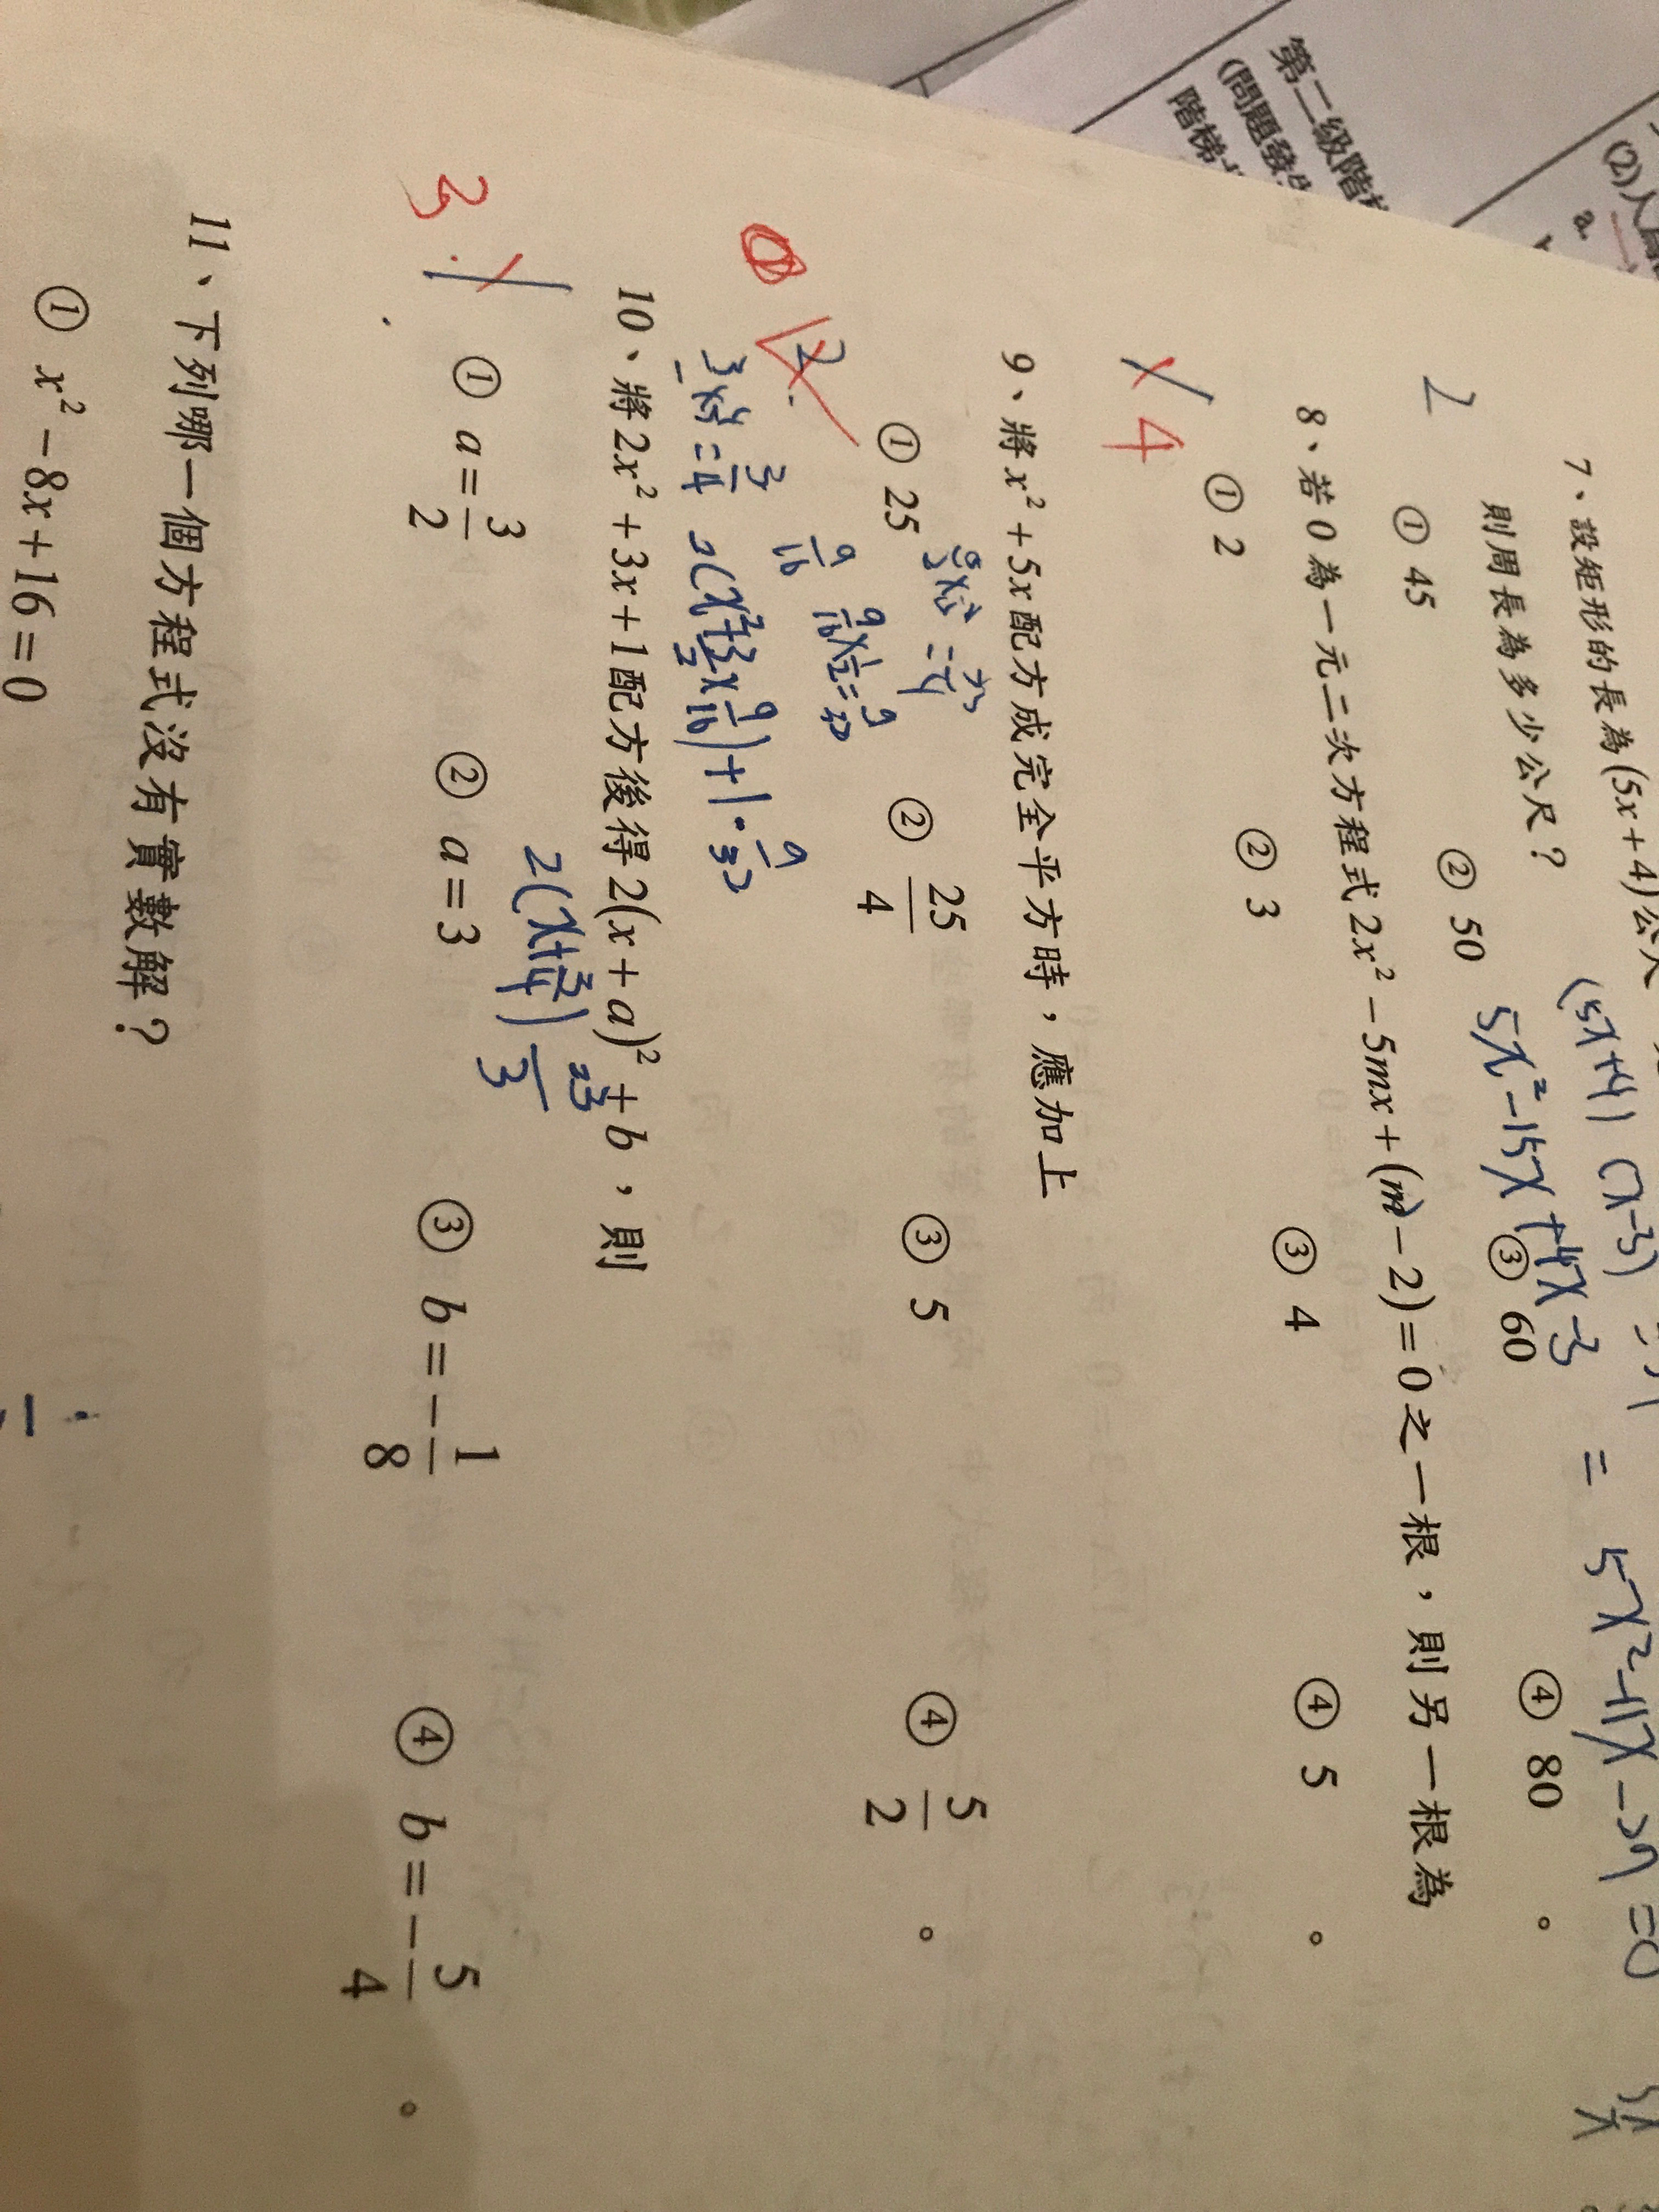 第二級階梯
(問題發
階梯
(2)人
a.
7、設矩形的長為(5x+4)公尺
則周長為多少公尺?
(5x+4)(x-3)
= 5x²-11x-27=0
5x²-15x+4x-3
2
① 45 ② 50 ③ 60 ④ 80 。
8、若0為一元二次方程式2x²-5mx+(m-2)=0之一根,則另一根為
1 4
① 2 ② 3 ③ 4 ④ 5 。
9、將x²+5x配方成完全平方時,應加上
2.
① 25 ② 25/4 ③ 5 ④ 5/2 。
9/16 9/16×1/2=9/32
2(x²+3/2x 9/16)+1-9/32
10、將2x²+3x+1配方後得2(x+a)²+b,則
2(x+3/4)
3
1
① a=3/2 ② a=3 ③ b=-1/8 ④ b=-5/4 。
11、下列哪一個方程式沒有實數解?
① x²-8x+16=0